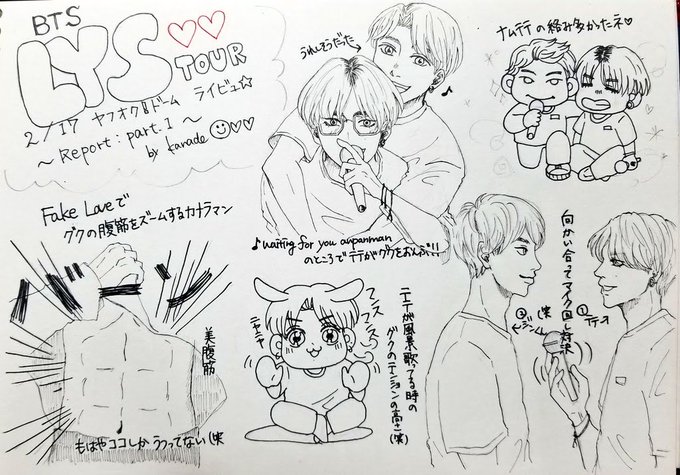 BTS
LYS
TOUR
2/17 ヤフオク!ドーム ライビュ☆
～Report: part.1～
by kanade
うれしそうだった
♪
ナムテテの絡み多かったネ♡
Fake Loveで
グクの腹筋をズームするカメラマン
美腹筋
もはやココしかうつってない(笑
♪waiting for you anpanman
のところでテテがグクをおんぶ!!
フンスフンス
ニャニャ
テテが風景歌ってる時の
グクのテンションの高さ(笑)
向かい合ってマイク回し対決
①テテ
②ジン
(笑